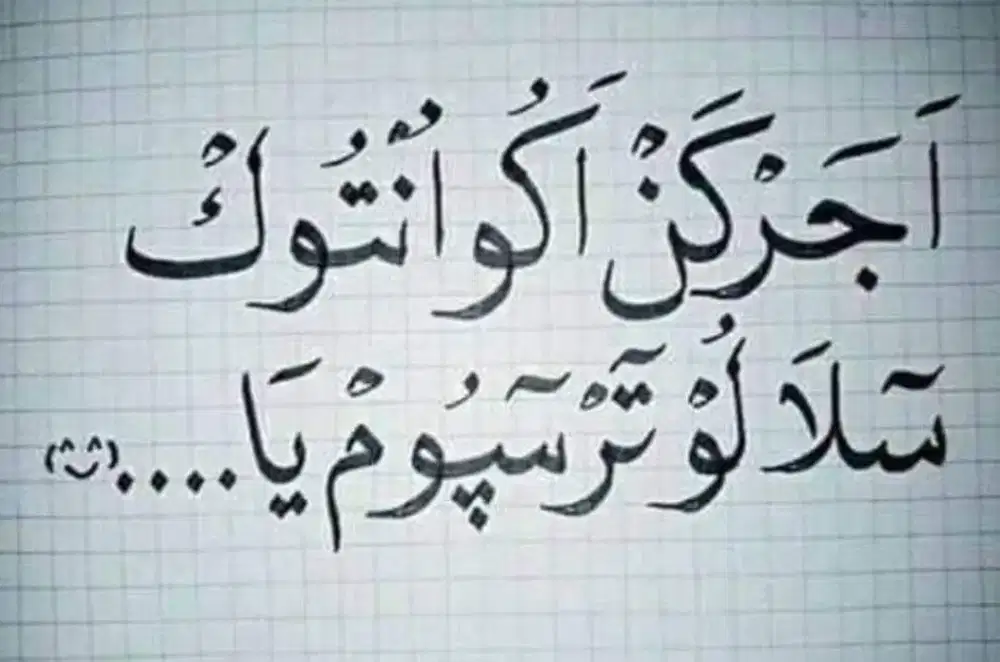 اَجَرْكَنْ اَكُو اُنْتُوكْ
سٓلَا لُوْ تٓرْسٓپُومْ يَا.... (^‿^)